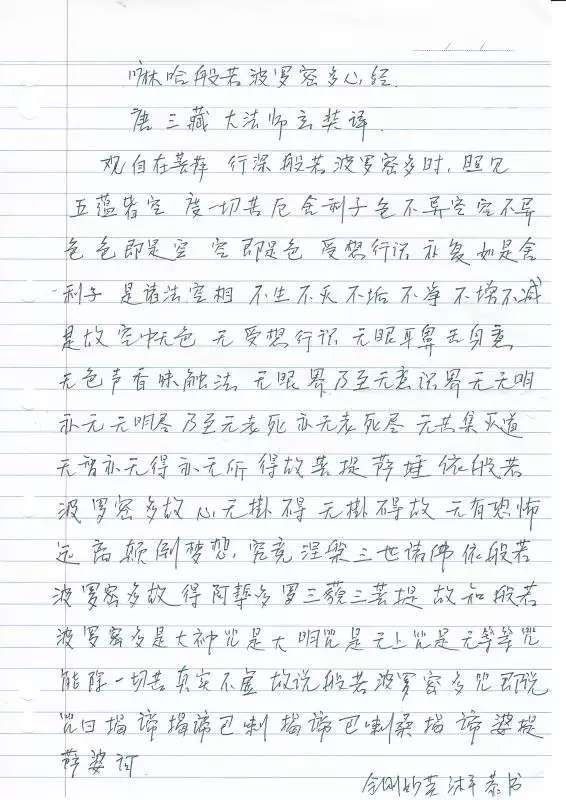 嘛哈般若波罗密多心经.
唐三藏大法师玄奘译.
观自在菩萨 行深般若波罗密多时, 照见
五蕴皆空 度一切苦厄舍利子色不异空空不异
色色即是空 空即是色 受想行识 亦复如是舍
利子 是诸法空相 不生不灭不垢不净不增不减
是故空中无色 无受想行识 无眼耳鼻舌身意
无色声香味触法 无眼界乃至无意识界无无明
亦无无明尽乃至无老死亦无老死尽 无苦集灭道
无智亦无得亦无所得故菩提萨埵依般若
波罗密多故心无掛碍 无掛碍故 无有恐怖
远离颠倒梦想, 究竟涅槃三世诸佛依般若
波罗密多故得阿耨多罗三藐三菩提 故知般若
波罗密多是大神咒是大明咒是无上咒是无等等咒
能除一切苦真实不虚 故说般若波罗密多咒即说
咒曰揭谛揭谛巴喇揭谛巴喇桑揭谛婆提
萨婆诃
金刚妙 沐手恭书